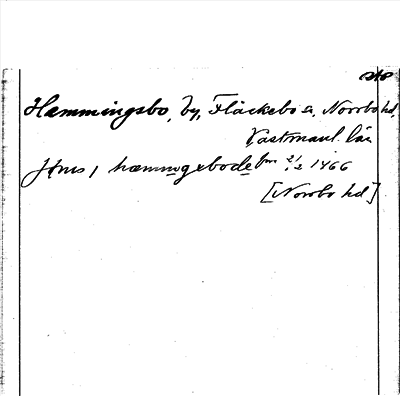 Hæmmingsbo, by, Fläckebo sn, Norrbo hd,
Västmanl. län
Jöns i hæmmgxbode 1466
[Norrbo hd]